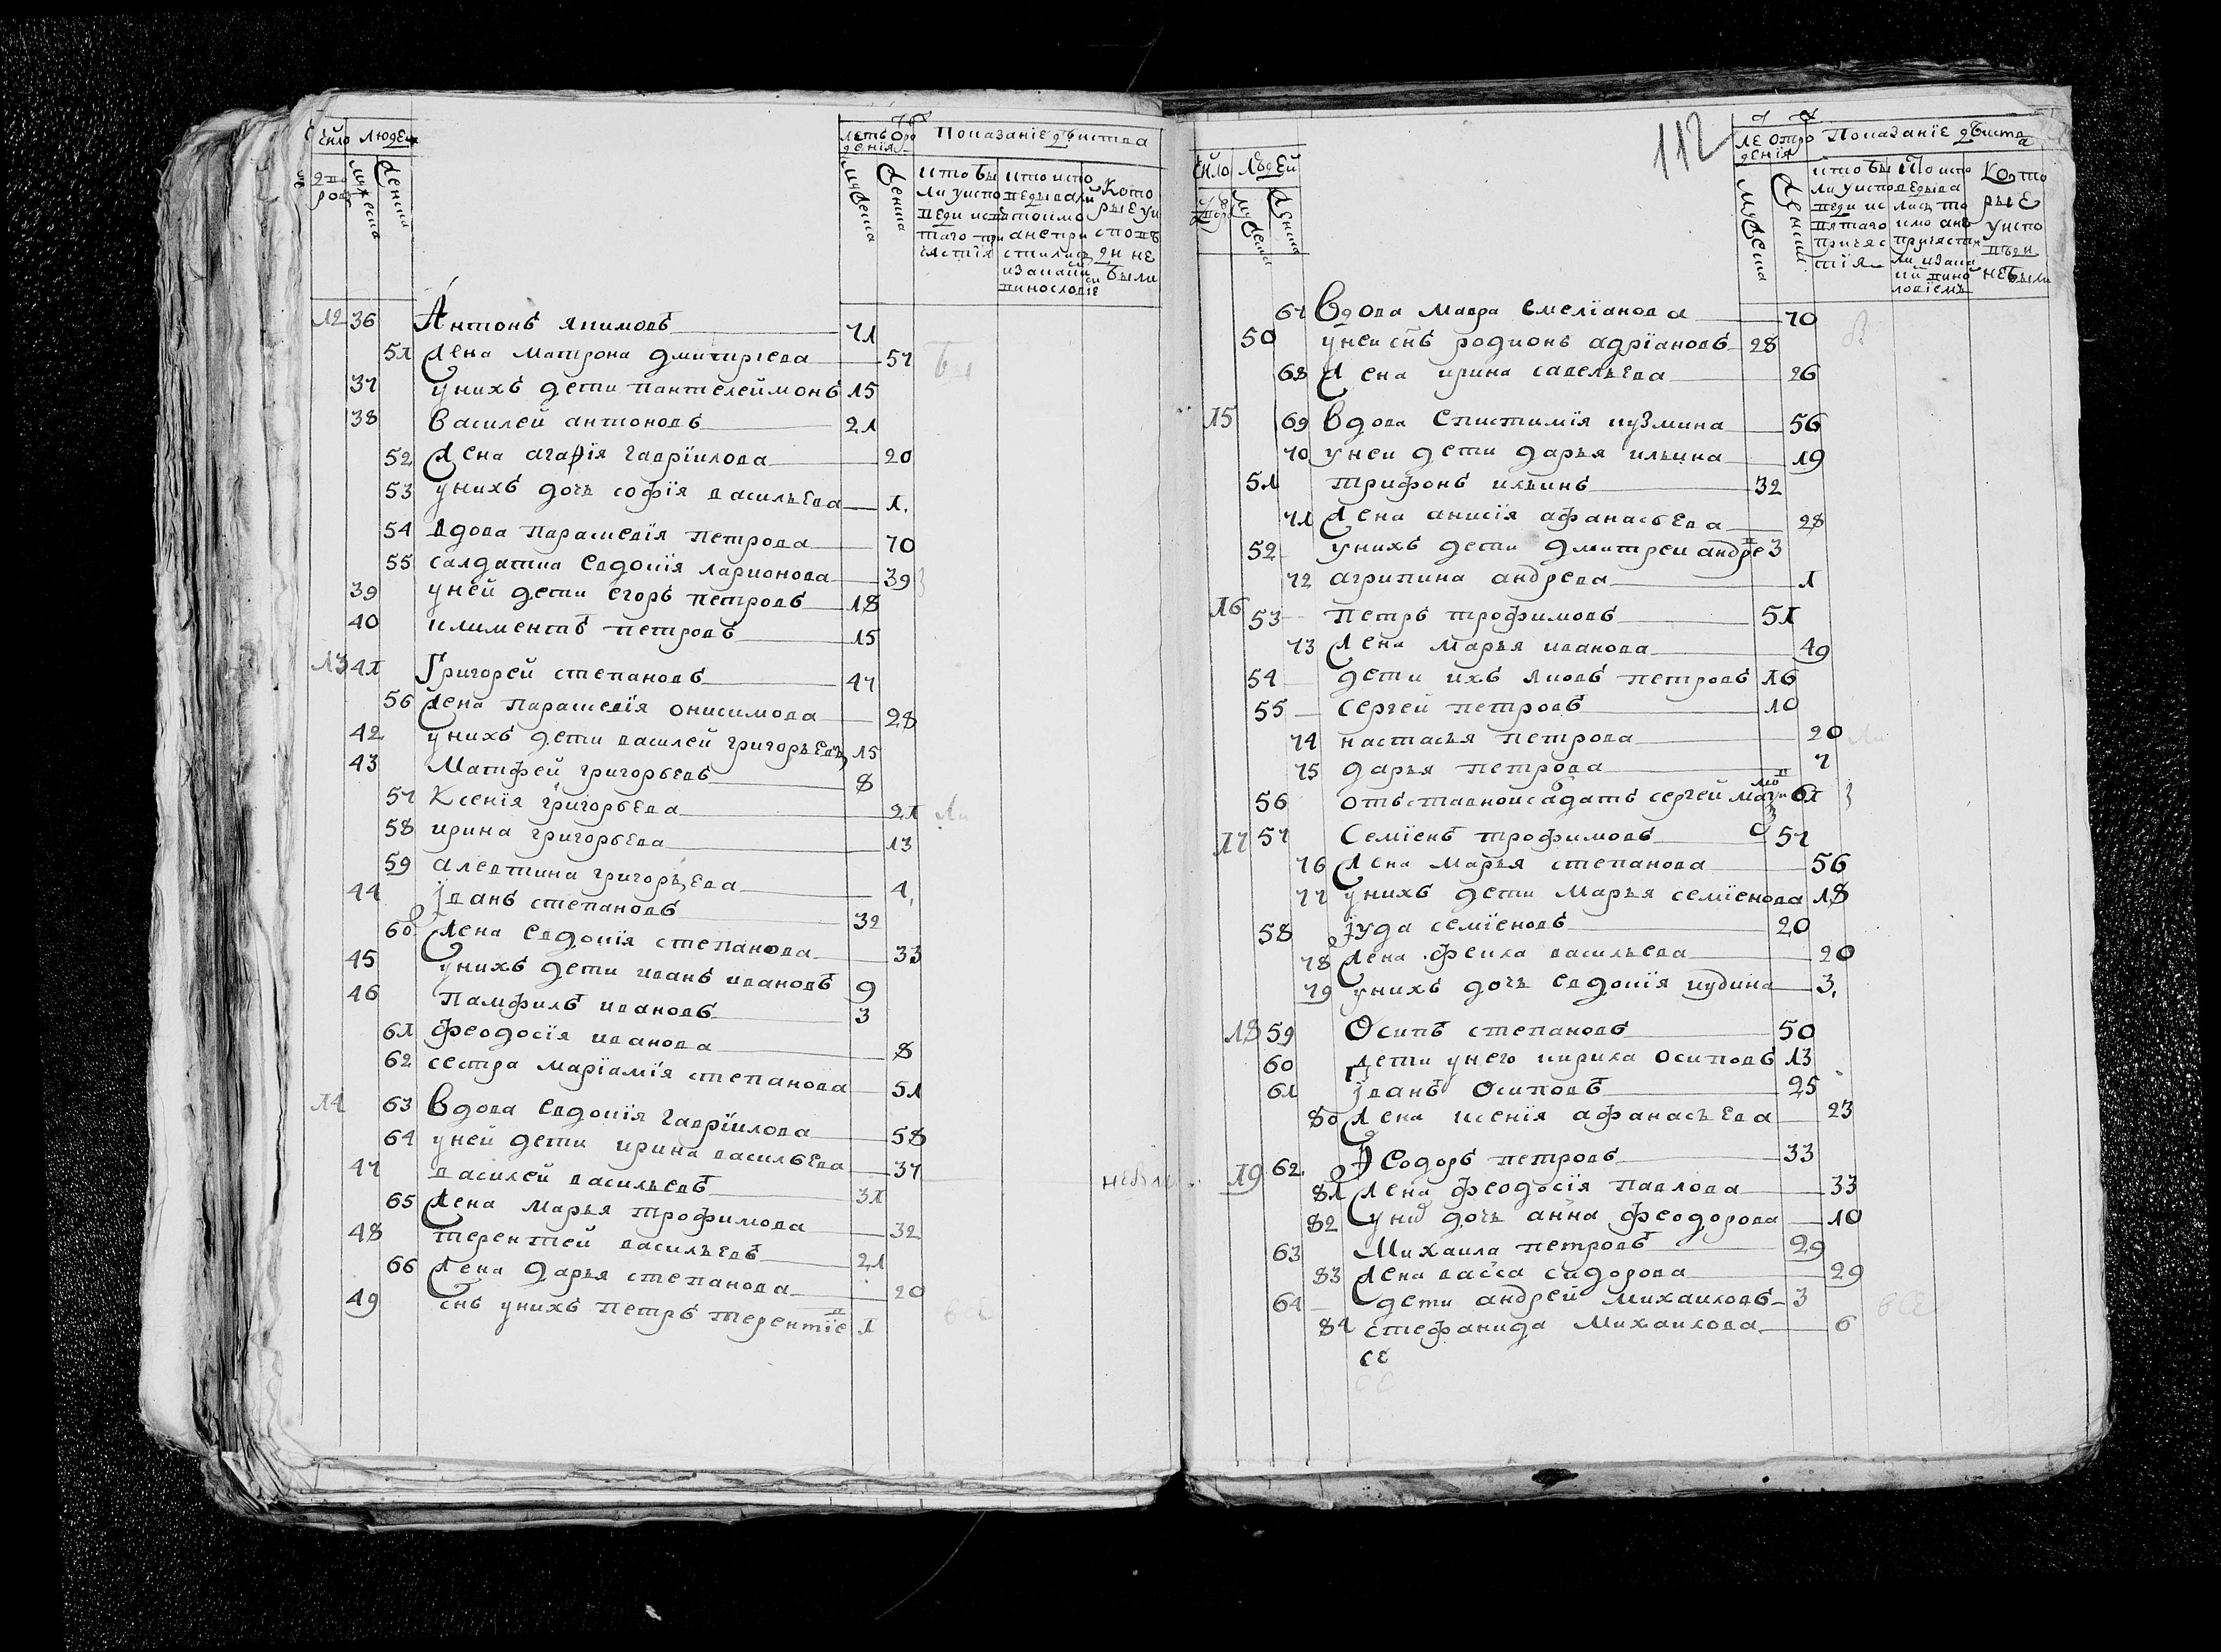 число людей
дво ров
мужеска
женска
летъ о ро ждения
мужеска
женска
Показание действа
кто бы ли у испо веди и святаго при частия
кто испо ведывали токмо а не при стились и за какой виною
Кото рые у и спове ди не были
12 36 Антонъ якимовъ 71
51 жена матрона дмитриева 57
37 у нихъ дети пантелеймонъ 15
38 Василей антоновъ 21
52 жена агафія гавріилова 20
53 у нихъ дочь софія васильева 1
54 вдова парасшевія петрова 70
55 салдатка евдокія ларионова 39
39 у ней дети егоръ петровъ 18
40 климентъ петровъ 15
13 41 Григорей степановъ 47
56 жена парасшевія онисимова 28
42 у нихъ дети василей григорьевъ 15
43 Матфей григорьевъ 8
57 Ксенія григорьева 21
58 ирина григорьева 13
59 алевтина григорьева 1
44 Іванъ степановъ 32
60 жена евдокія степанова 33
45 у нихъ дети иванъ ивановъ 9
46 памфилъ ивановъ 3
61 феодосія иванова 8
62 сестра маріамія степанова 51
14 63 Вдова евдокія гавріилова 58
64 у ней дети ирина васильева 37
47 василей васильевъ 31
65 жена марья трофимова 32
48 терентей васильевъ 21
66 жена дарья степанова 20
49 снъ у нихъ петръ терентіев 1
112
число людей
мужеска
женска
ле от ро ждения
мужеска
женска
Показаніе действа
кто бы ли у испо веди и с вятаго причас тія
Кто испо ведыва лись то кмо а не причасти ли и за ка кий вино словіемъ
Кото рые у испо веди не были
67 Вдова мавра емеліанова 70
50 у неи снъ родионъ адріановъ 28
68 жена ирина савельева 26
15 69 Вдова епистимія кузмина 56
70 у неи дети дарья ильина 19
51 трифонъ ильинъ 32
71 жена анисія афанасьева 28
52 у нихъ дети дмитреи андрев 3
72 агрипина андрева 1
16 53 Петръ трофимовъ 51
73 жена марья иванова 49
54 дети ихъ яковъ петровъ 16
55 сергей петровъ 10
74 настасья петрова 20
75 дарья петрова 7
56 отъставнои салдатъ сергей 61
17 57 Семіенъ трофимовъ 57
76 жена марья степанова 56
77 у нихъ дети марья семіенова 18
58 іуда семіеновъ 20
78 жена фекла васильева 20
79 у нихъ дочь евдокія иудина 3
18 59 Осипъ степановъ 50
60 дети у него кирила осиповъ 13
61 Іванъ осиповъ 25
80 жена ксенія афанасьева 23
19 62 Феодоръ петровъ 33
81 жена феодосія павлова 33
82 у них дочь анна феодорова 10
63 Михаила петровъ 29
83 жена васса сидорова 29
64 дети андрей михаиловъ 3
84 стефанида михаилова 6